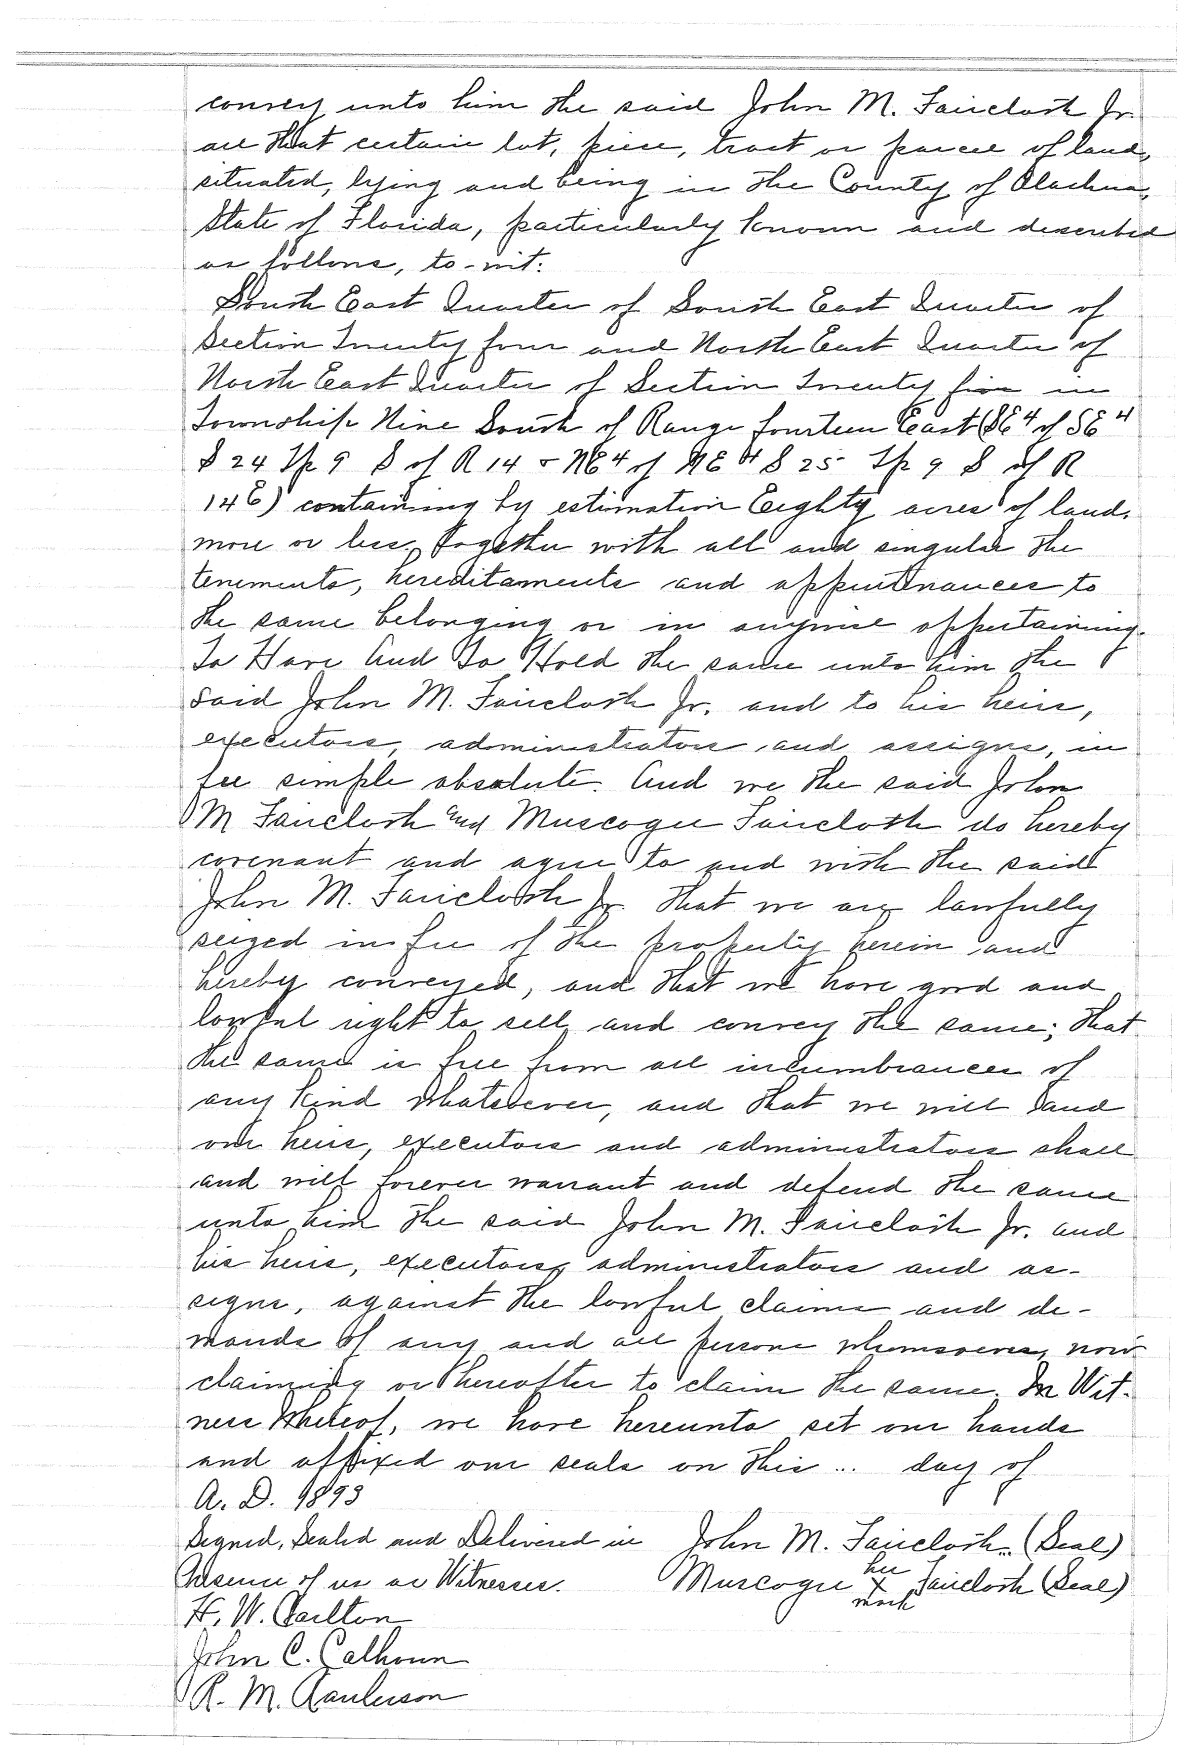 convey unto him the said John M. Faircloth Jr.
all that certain lot, piece, tract or parcel of land,
situated, lying and being in the County of Alachua,
State of Florida, particularly known and described
as follows, to-wit:
South East Quarter of South East Quarter of
Section Twenty four and North East Quarter of
North East Quarter of Section Twenty five in
Township Nine South of Range fourteen East (SE 4 of SE 4
S 24 Tp 9 S of R 14 & NE 4 of NE 4 S 25 Tp 9 S of R
14 E) containing by estimation Eighty acres of land,
more or less, together with all and singular the
tenements, hereditaments and appurtenances to
the same belonging or in anywise appertaining.
To Have And To Hold the same unto him the
said John M. Faircloth Jr. and to his heirs,
executors, administrators and assigns, in
fee simple absolute. And we the said John
M Faircloth and Muscogee Faircloth do hereby
covenant and agree to and with the said
John M. Faircloth Jr. that we are lawfully
seized in fee of the property herein and
hereby conveyed, and that we have good and
lawful right to sell and convey the same; that
the same is free from all incumbrances of
any kind whatsoever, and that we will and
our heirs, executors and administrators shall
and will forever warrant and defend the same
unto him the said John M. Faircloth Jr. and
his heirs, executors, administrators and as-
signs, against the lawful claims and de-
mands of any and all persons whomsoever, now
claiming or hereafter to claim the same. In Wit-
ness Whereof, we have hereunto set our hands
and affixed our seals on this ... day of
A. D. 1893
Signed, Sealed and Delivered in John M. Faircloth.. (Seal)
Presence of us as Witnesses. Muscogee her X mark Faircloth (Seal)
H. W. Carlton
John C. Calhoun
R. M. Raulerson